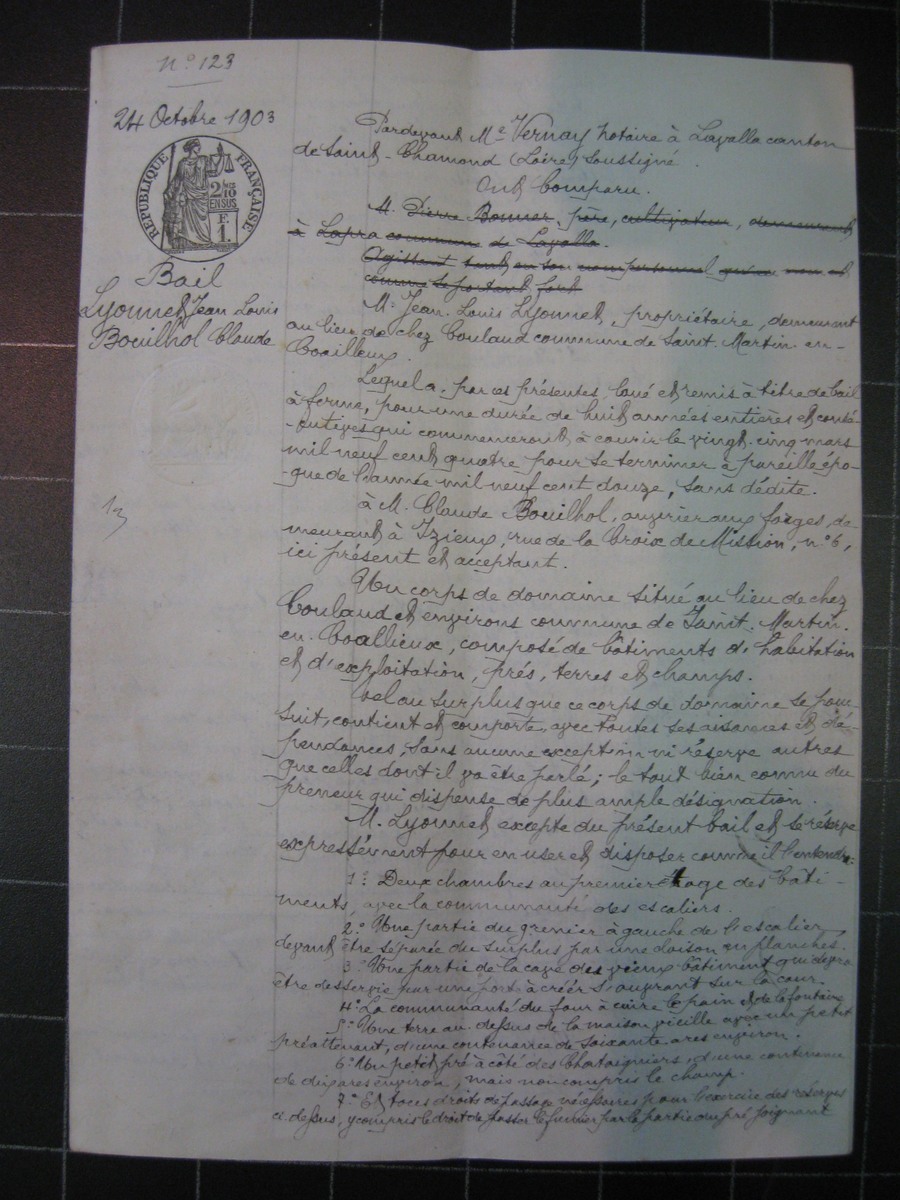 n° 123
24 Octobre 1903
RÉPUBLIQUE FRANÇAISE
2/10 EN SUS
F. 1.
Bail
Lyonnet Jean Louis
Bouilhol Claude
Pardevant Me Vernay notaire à Lavalla canton
de Saint-Chamond (Loire) soussigné.
Ont Comparu.
M. Pierre Bonner, père, cultivateur, demeurant
à Lapra commune de Lavalla.
Agissant tant en son nom personnel qu'au nom et
comme se portant fort
M. Jean-Louis Lyonnet, propriétaire, demeurant
au lieu de chez Coulaud commune de Saint-Martin-en-
Coailleux.
Lequel a par ces présentes, loué et remis à titre de bail
à ferme, pour une durée de huit années entières et consé-
-cutives qui commenceront à courir le vingt-cinq mars
mil neuf cent quatre pour se terminer à pareille épo-
-que de l'année mil neuf cent douze, sans dédite.
à M. Claude Bouilhol, ouvrier aux forges, de-
meurant à Izieux, rue de la Croix de Mission, n° 6,
ici présent et acceptant.
Un corps de domaine situé au lieu de chez
Coulaud et environs commune de Saint-Martin-
en-Coallieux, composé de bâtiments d'habitation
et d'exploitation, prés, terres et champs.
Tel au surplus que ce corps de domaine se pour-
suit, contient et comporte, avec toutes ses aisances et dé-
pendances, sans aucune exception ni réserve autres
que celles dont il va être parlé; le tout bien connu du
preneur qui dispense de plus ample désignation.
M. Lyonnet excepte du présent bail et se réserve
expressément pour en user et disposer comme il l'entendra:
1° Deux chambres au premier étage des bâti-
ments, avec la communauté des escaliers.
2° Une partie du grenier à gauche de l'escalier
devant être séparée du surplus par une cloison en planches.
3° Une partie de la cave des vieux bâtiment qui devra
être desservie par une porte à créer s'ouvrant sur la cour.
4° La communauté du four à cuire le pain et de la fontaine
5° Une terre au-dessus de la maison vieille avec un petit
pré attenant, d'une contenance de soixante ares environ.
6° Un petit pré à côté des Chataigniers, d'une contenance
de dix ares environ, mais non compris le champ.
7° Et tous droits de passage nécessaires pour l'exercice des réserves
ci-dessus, y compris le droit de passer le fumier par la partie du pré joignant